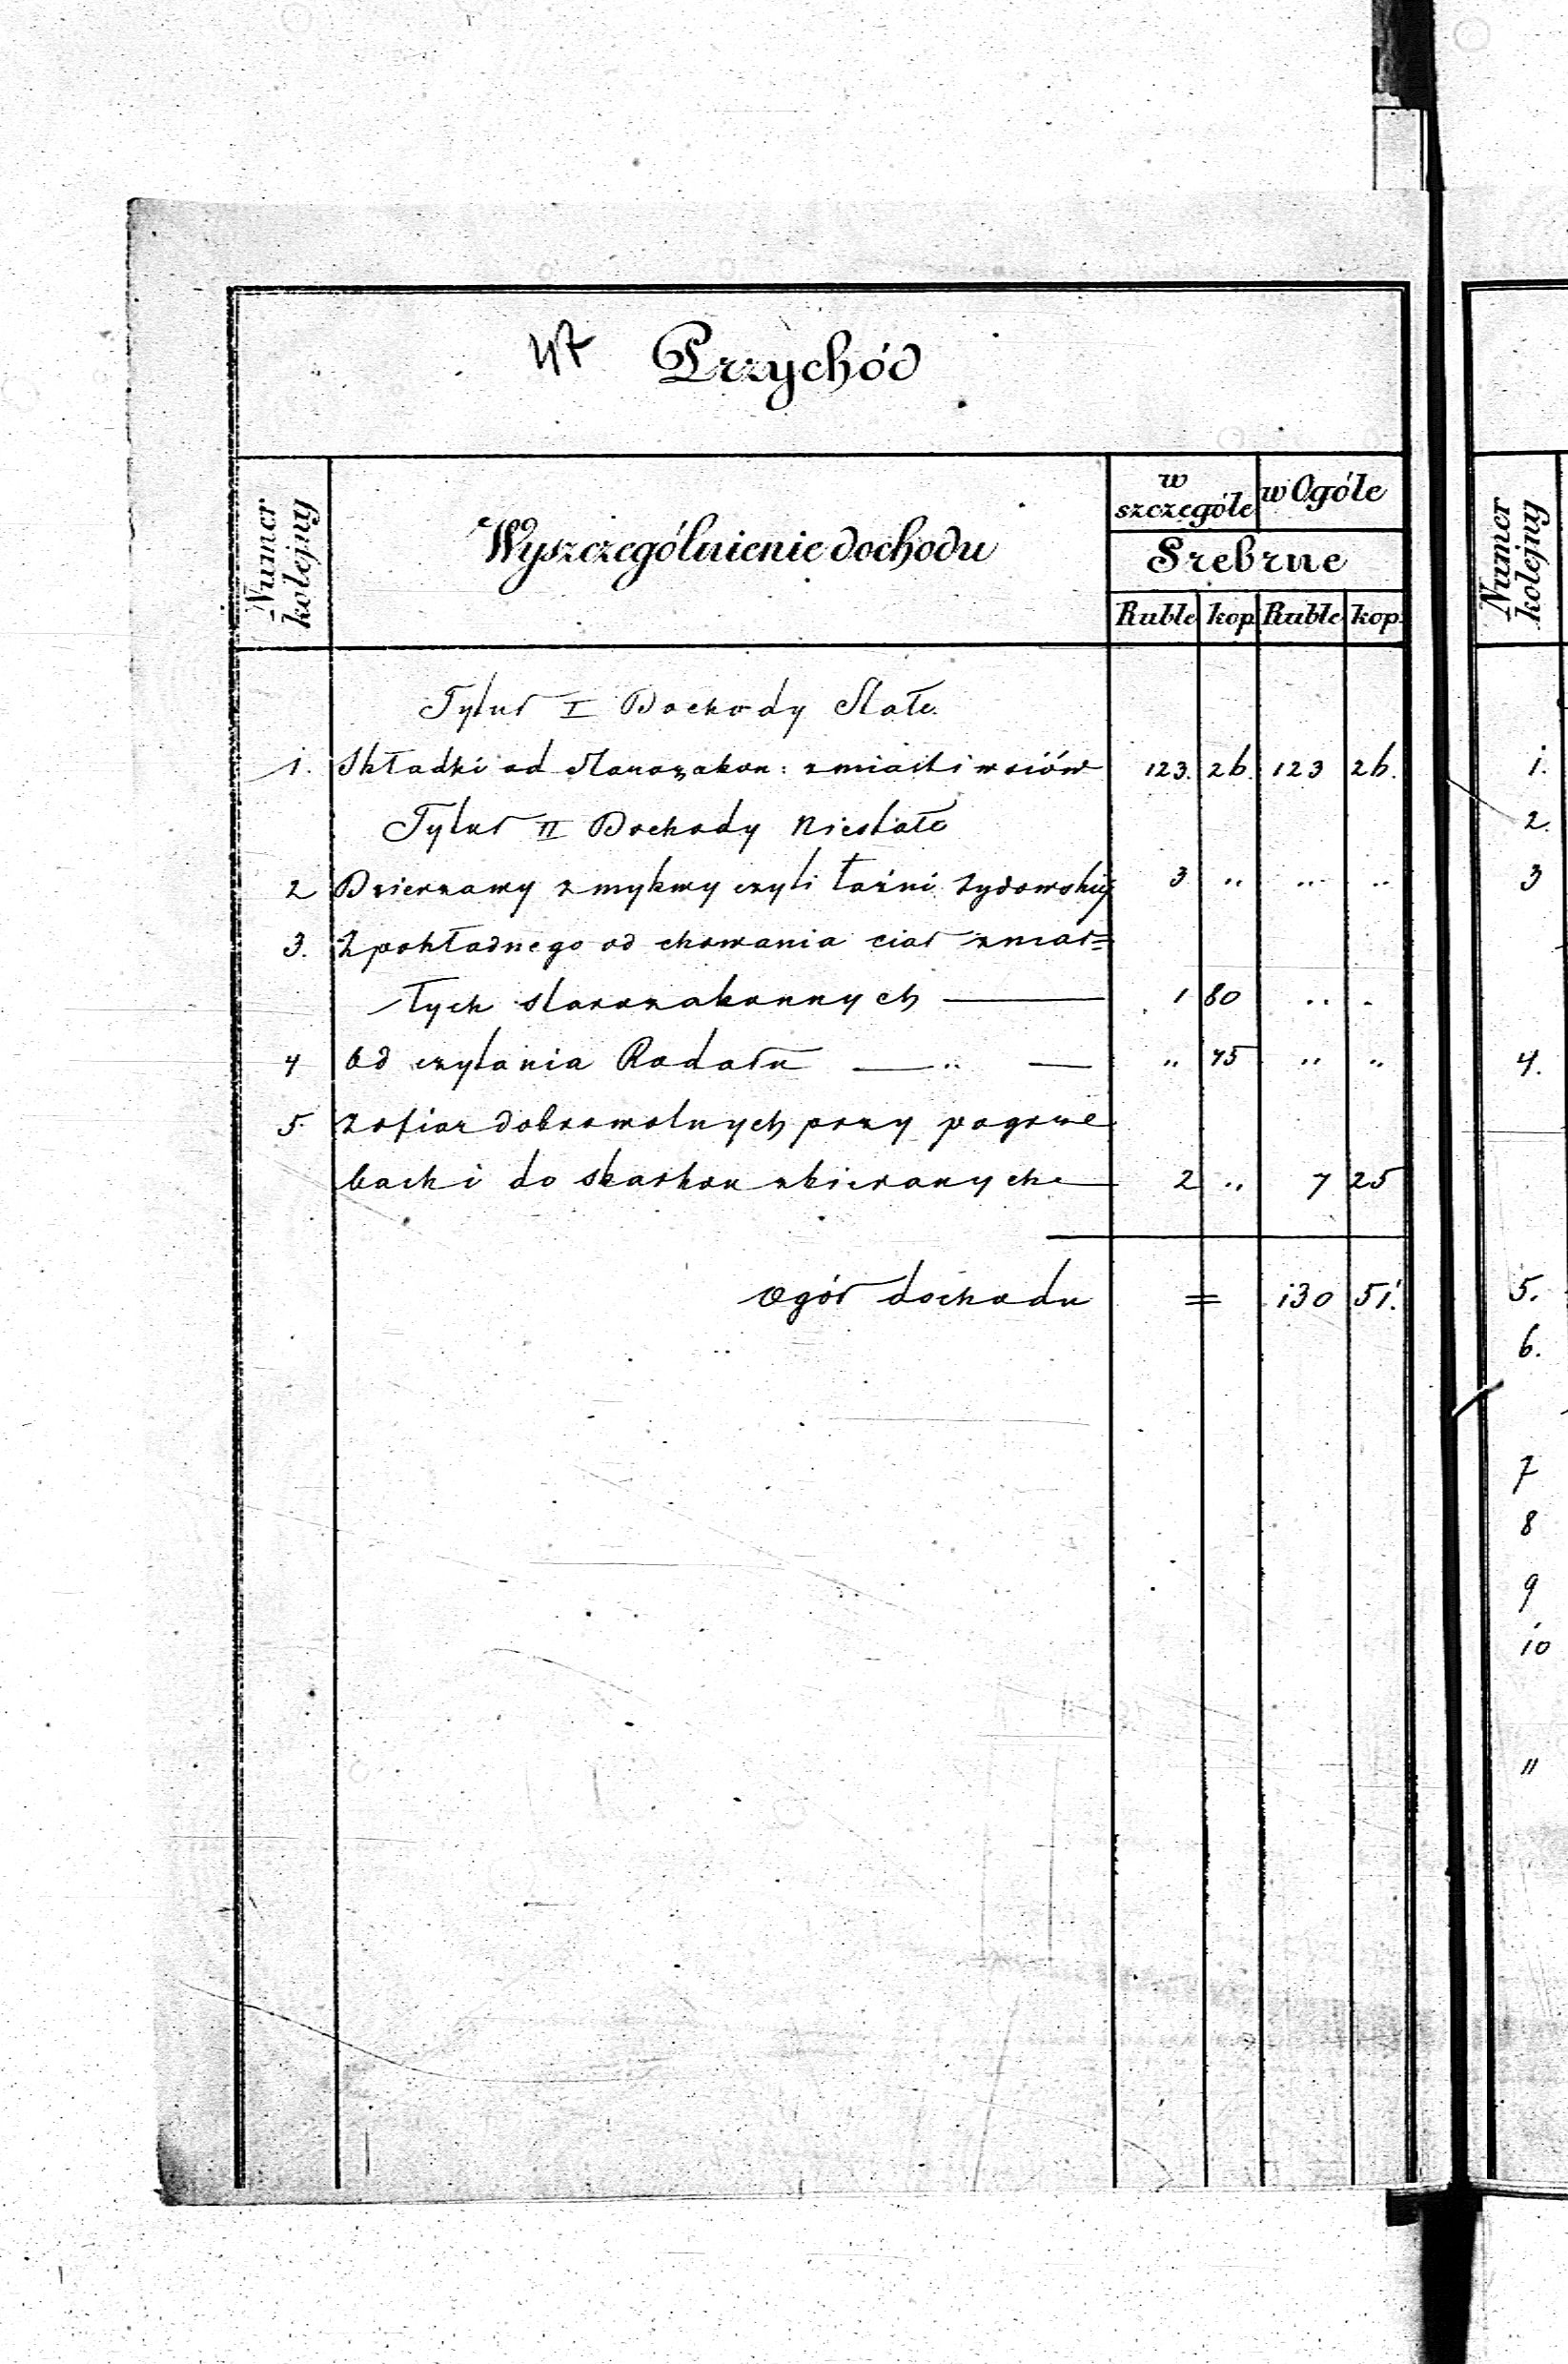 47 Przychód
Numer kolejny
Wyszczególnienie dochodu
w szczególe
w Ogóle
Srebrne
Ruble kop. Ruble kop.
Tytuł I Dochody Stałe
1. Składki od Starozakon: z miast i wsiów 123. 26. 123 26.
Tytuł II Dochody Niestałe
2 Dzierżawy z mykwy czyli łaźni żydowskiej 3 .. ... ..
3. Z pokładnego od chowania ciał zmar=
łych starozakonnych — 1 80 .. .
4 Od czytania Rodału — .. — .. 45 .. ..
5. Z ofiar dobrowolnych przy pogrze
bach i do skarbon zbieranych — 2 .. 7 25
Ogół dochodu = 130 51.
Numer kolejny
1.
2.
3
4.
5.
6.
7
8
9
10
11